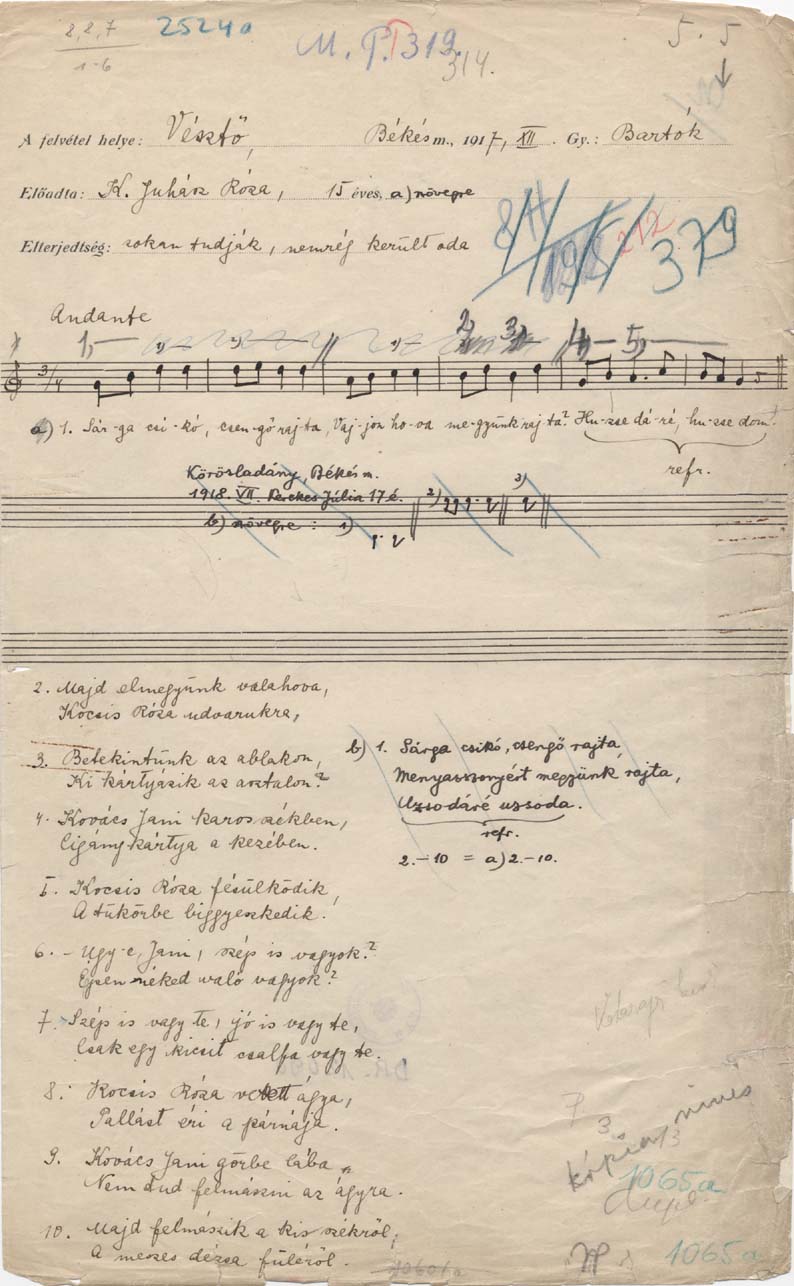 8,8,7
1-6
2524a
M. P. I 319.
314.
5. 5
A felvétel helye: Vésztő, Békés m., 1917, XII. Gy.: Bartók
Előadta: K. Juhász Róza, 15 éves, a) szövegre
Elterjedtség: sokan tudják, nemrég került oda
212
379
Andante
1) 1) 2) 1) 2) 3) 4) 5)
3/4
a) 1. Sár-ga csi-kó, csen-gő raj-ta, Vaj-jon ho-va me-gyünk raj-ta? Hu-zse dá-ré, hu-zse dom!
refr.
Körösladány, Békés m.
1918. VII. Kerekes Júlia 17 é.
b) szövegre: 1) 2) 3)
2. Majd elmegyünk valahova,
Kocsis Róza udvarukra,
3. Betekintünk az ablakon,
Ki kártyázik az asztalon?
4. Kovács Jani karos székben,
Cigány kártya a kezében.
5. Kocsis Róza fésülködik,
A tükörbe biggyeszkedik.
6. - Ugy-e, Jani, szép is vagyok?
Épen néked való vagyok?
7. Szép is vagy te, jó is vagy te,
Csak egy kicsit csalfa vagy te.
8. Kocsis Róza vetett ágya,
Pallást éri a párnája.
9. Kovács Jani görbe lába
Nem tud felmászni az ágyra.
10. Majd felmászik a kis székről,
A meszes dézsa füléről.
b) 1. Sárga csikó, csengő rajta,
Menyasszonyért megyünk rajta,
Uzsodáré uzsoda.
refr.
2.-10 = a) 2.-10.
7
3
13
kópia nincs
1065a
Dupl.
1065a